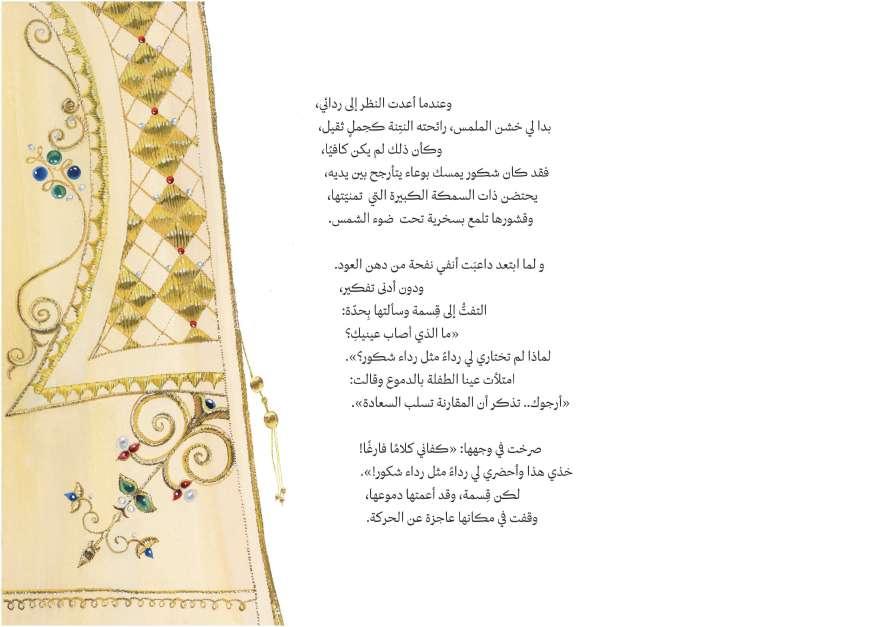 وعندما أعدت النظر إلى ردائي،
بدا لي خشن الملمس، رائحته النتِنة كجملٍ ثقيل،
وكأن ذلك لم يكن كافيًا،
فقد كان شكور يمسك بوعاء يتأرجح بين يديه،
يحتضن ذات السمكة الكبيرة التي تمنيّتها،
وقشورها تلمع بسخرية تحت ضوء الشمس.
و لما ابتعد داعبَت أنفي نفحة من دهن العود.
ودون أدنى تفكير،
التفتُّ إلى قِسمة وسألتها بِحدّة:
«ما الذي أصاب عينيكِ؟
لماذا لم تختاري لي رداءً مثل رداء شكور؟».
امتلأت عينا الطفلة بالدموع وقالت:
«أرجوك.. تذكر أن المقارنة تسلب السعادة».
صرخت في وجهها: «كفاني كلامًا فارغًا!
خذي هذا وأحضري لي رداءً مثل رداء شكور!».
لكن قِسمة، وقد أعمتها دموعها،
وقفت في مكانها عاجزة عن الحركة.